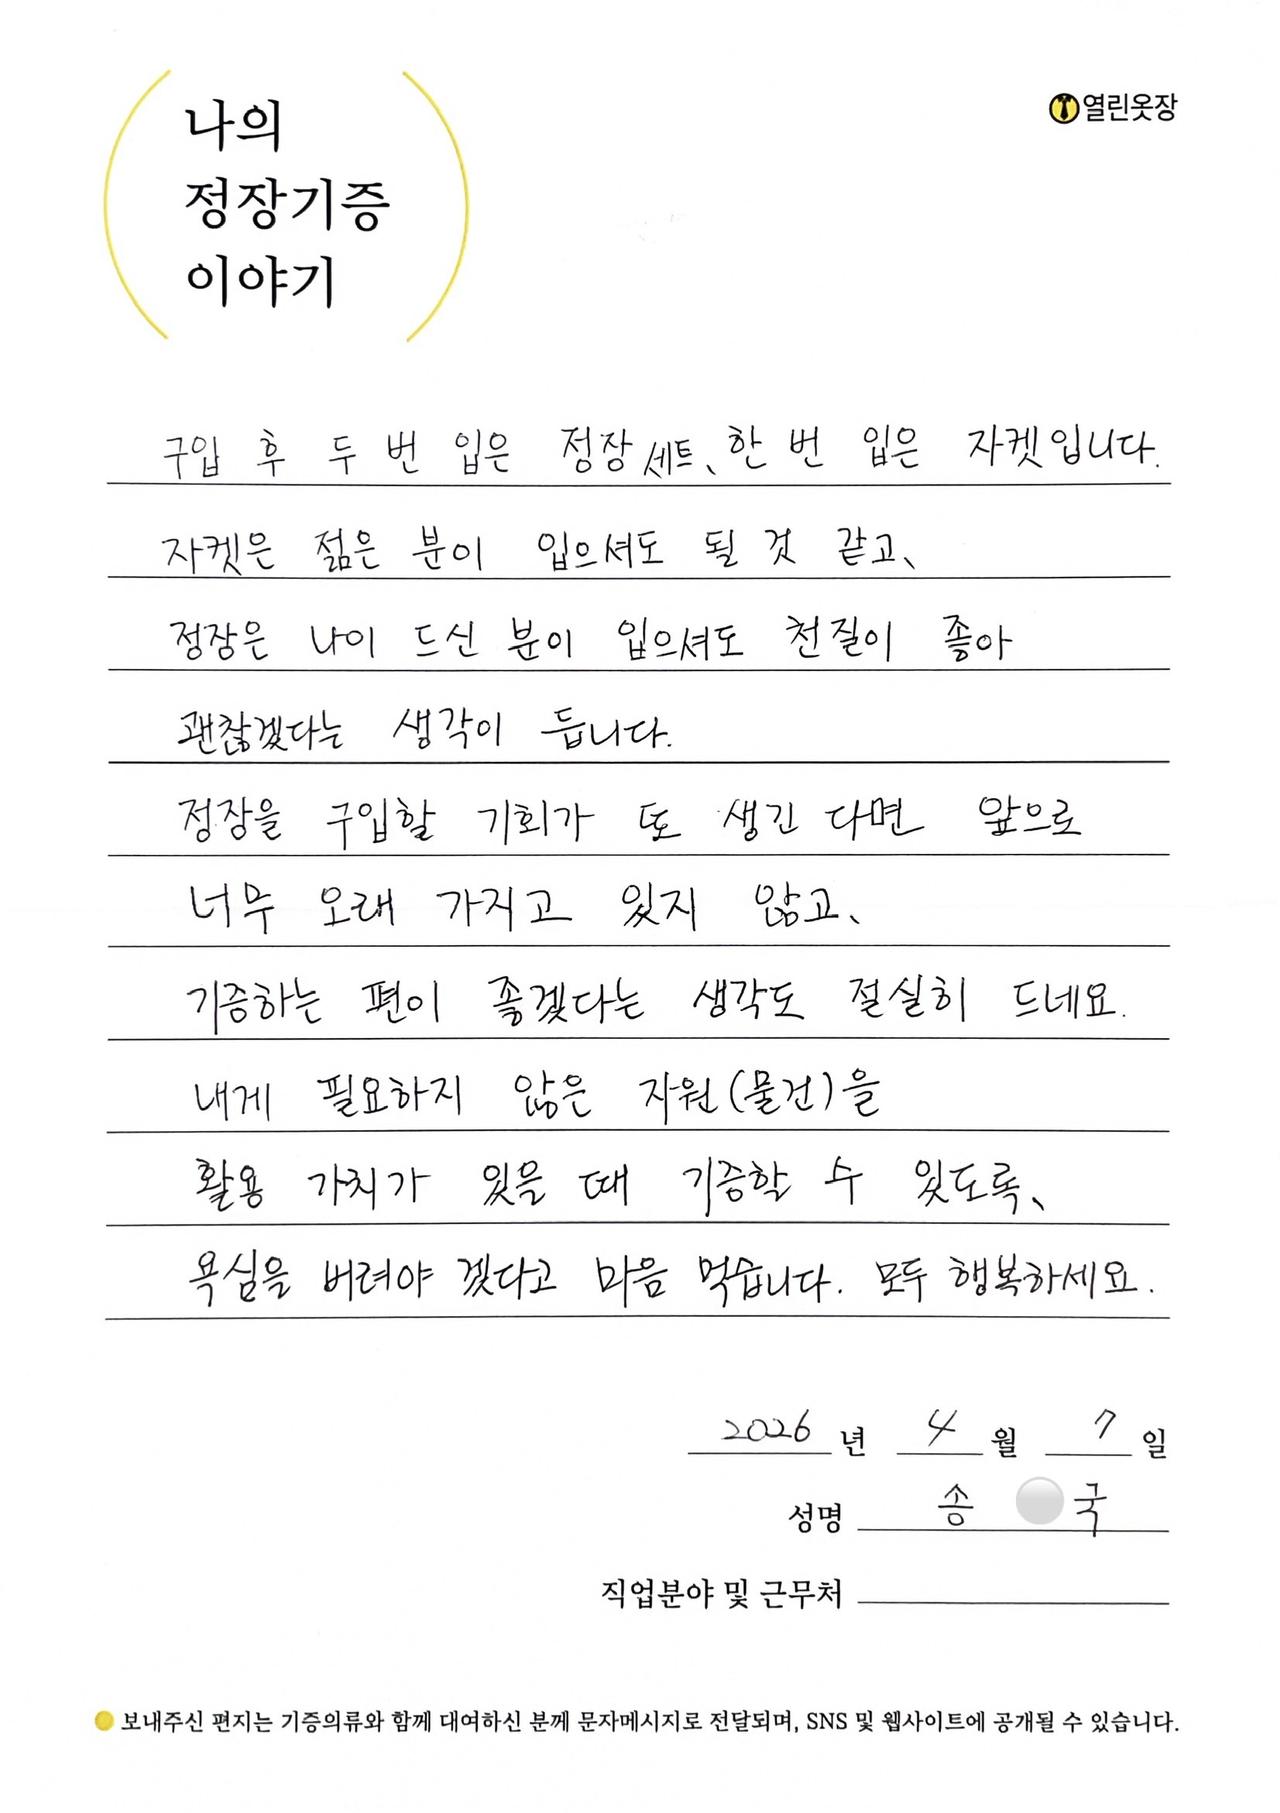 나의
정장기증
이야기
열린옷장
구입 후 두 번 입은 정장세트、한 번 입은 자켓입니다.
자켓은 젊은 분이 입으셔도 될 것 같고、
정장은 나이 드신 분이 입으셔도 천질이 좋아
괜찮겠다는 생각이 듭니다.
정장을 구입할 기회가 또 생긴다면 앞으로
너무 오래 가지고 있지 않고、
기증하는 편이 좋겠다는 생각도 절실히 드네요.
내게 필요하지 않은 자원(물건)을
활용 가치가 있을 때 기증할 수 있도록、
욕심을 버려야겠다고 마음 먹습니다. 모두 행복하세요.
2026 년 4 월 7 일
성명 송 국
직업분야 및 근무처
보내주신 편지는 기증의류와 함께 대여하신 분께 문자메시지로 전달되며, SNS 및 웹사이트에 공개될 수 있습니다.